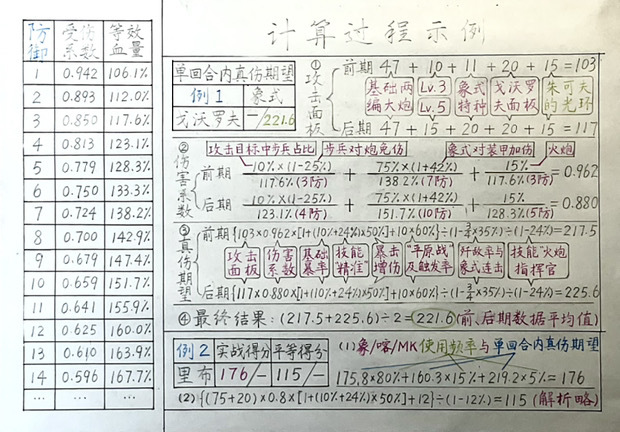 计算过程示例
防御 受伤系数 等效血量
1 0.942 106.1%
2 0.893 112.0%
3 0.850 117.6%
4 0.813 123.1%
5 0.779 128.3%
6 0.750 133.3%
7 0.724 138.2%
8 0.700 142.9%
9 0.679 147.4%
10 0.659 151.7%
11 0.641 155.9%
12 0.625 160.0%
13 0.610 163.9%
14 0.596 167.7%
… … …
单回合内真伤期望
例1 象式
戈沃罗夫 —/221.6
①攻击面板
前期 47 + 10 + 11 + 20 + 15 = 103
基础两编大炮 Lv.3 Lv.5 象式特种 戈沃罗夫面板 朱可夫的光环
后期 47 + 15 + 20 + 20 + 15 = 117
②伤害系数
攻击目标中步兵占比 步兵对炮免伤 象式对装甲加伤 火炮
前期 10%×(1-25%)/117.6%(3防) + 75%×(1+42%)/138.2%(7防) + 15%/117.6%(3防) = 0.962
后期 10%×(1-25%)/123.1%(4防) + 75%×(1+42%)/151.7%(10防) + 15%/128.3%(5防) = 0.880
③真伤期望
前期{103×0.962×[1+(10%+24%)×50%]+10×60%}÷(1-3/4×35%)÷(1-24%)=217.5
攻击面板 伤害系数 基础暴率 技能"精准" 暴击增伤 "平原战"及触发率 歼敌率与象式连击 技能"火炮指挥官"
后期{117×0.880×[1+(10%+24%)×50%]+10×60%}÷(1-3/4×35%)÷(1-24%)=225.6
④最终结果:(217.5+225.6)÷2=221.6(前、后期数据平均值)
例2 实战得分 平等得分
里布 176/— 115/—
(1)象/喀/MK使用频率与单回合内真伤期望
175.8×80%+160.3×15%+219.2×5%=176
(2){(75+20)×0.8×[1+(10%+24%)×50%]+12}÷(1-12%)=115(解析略)